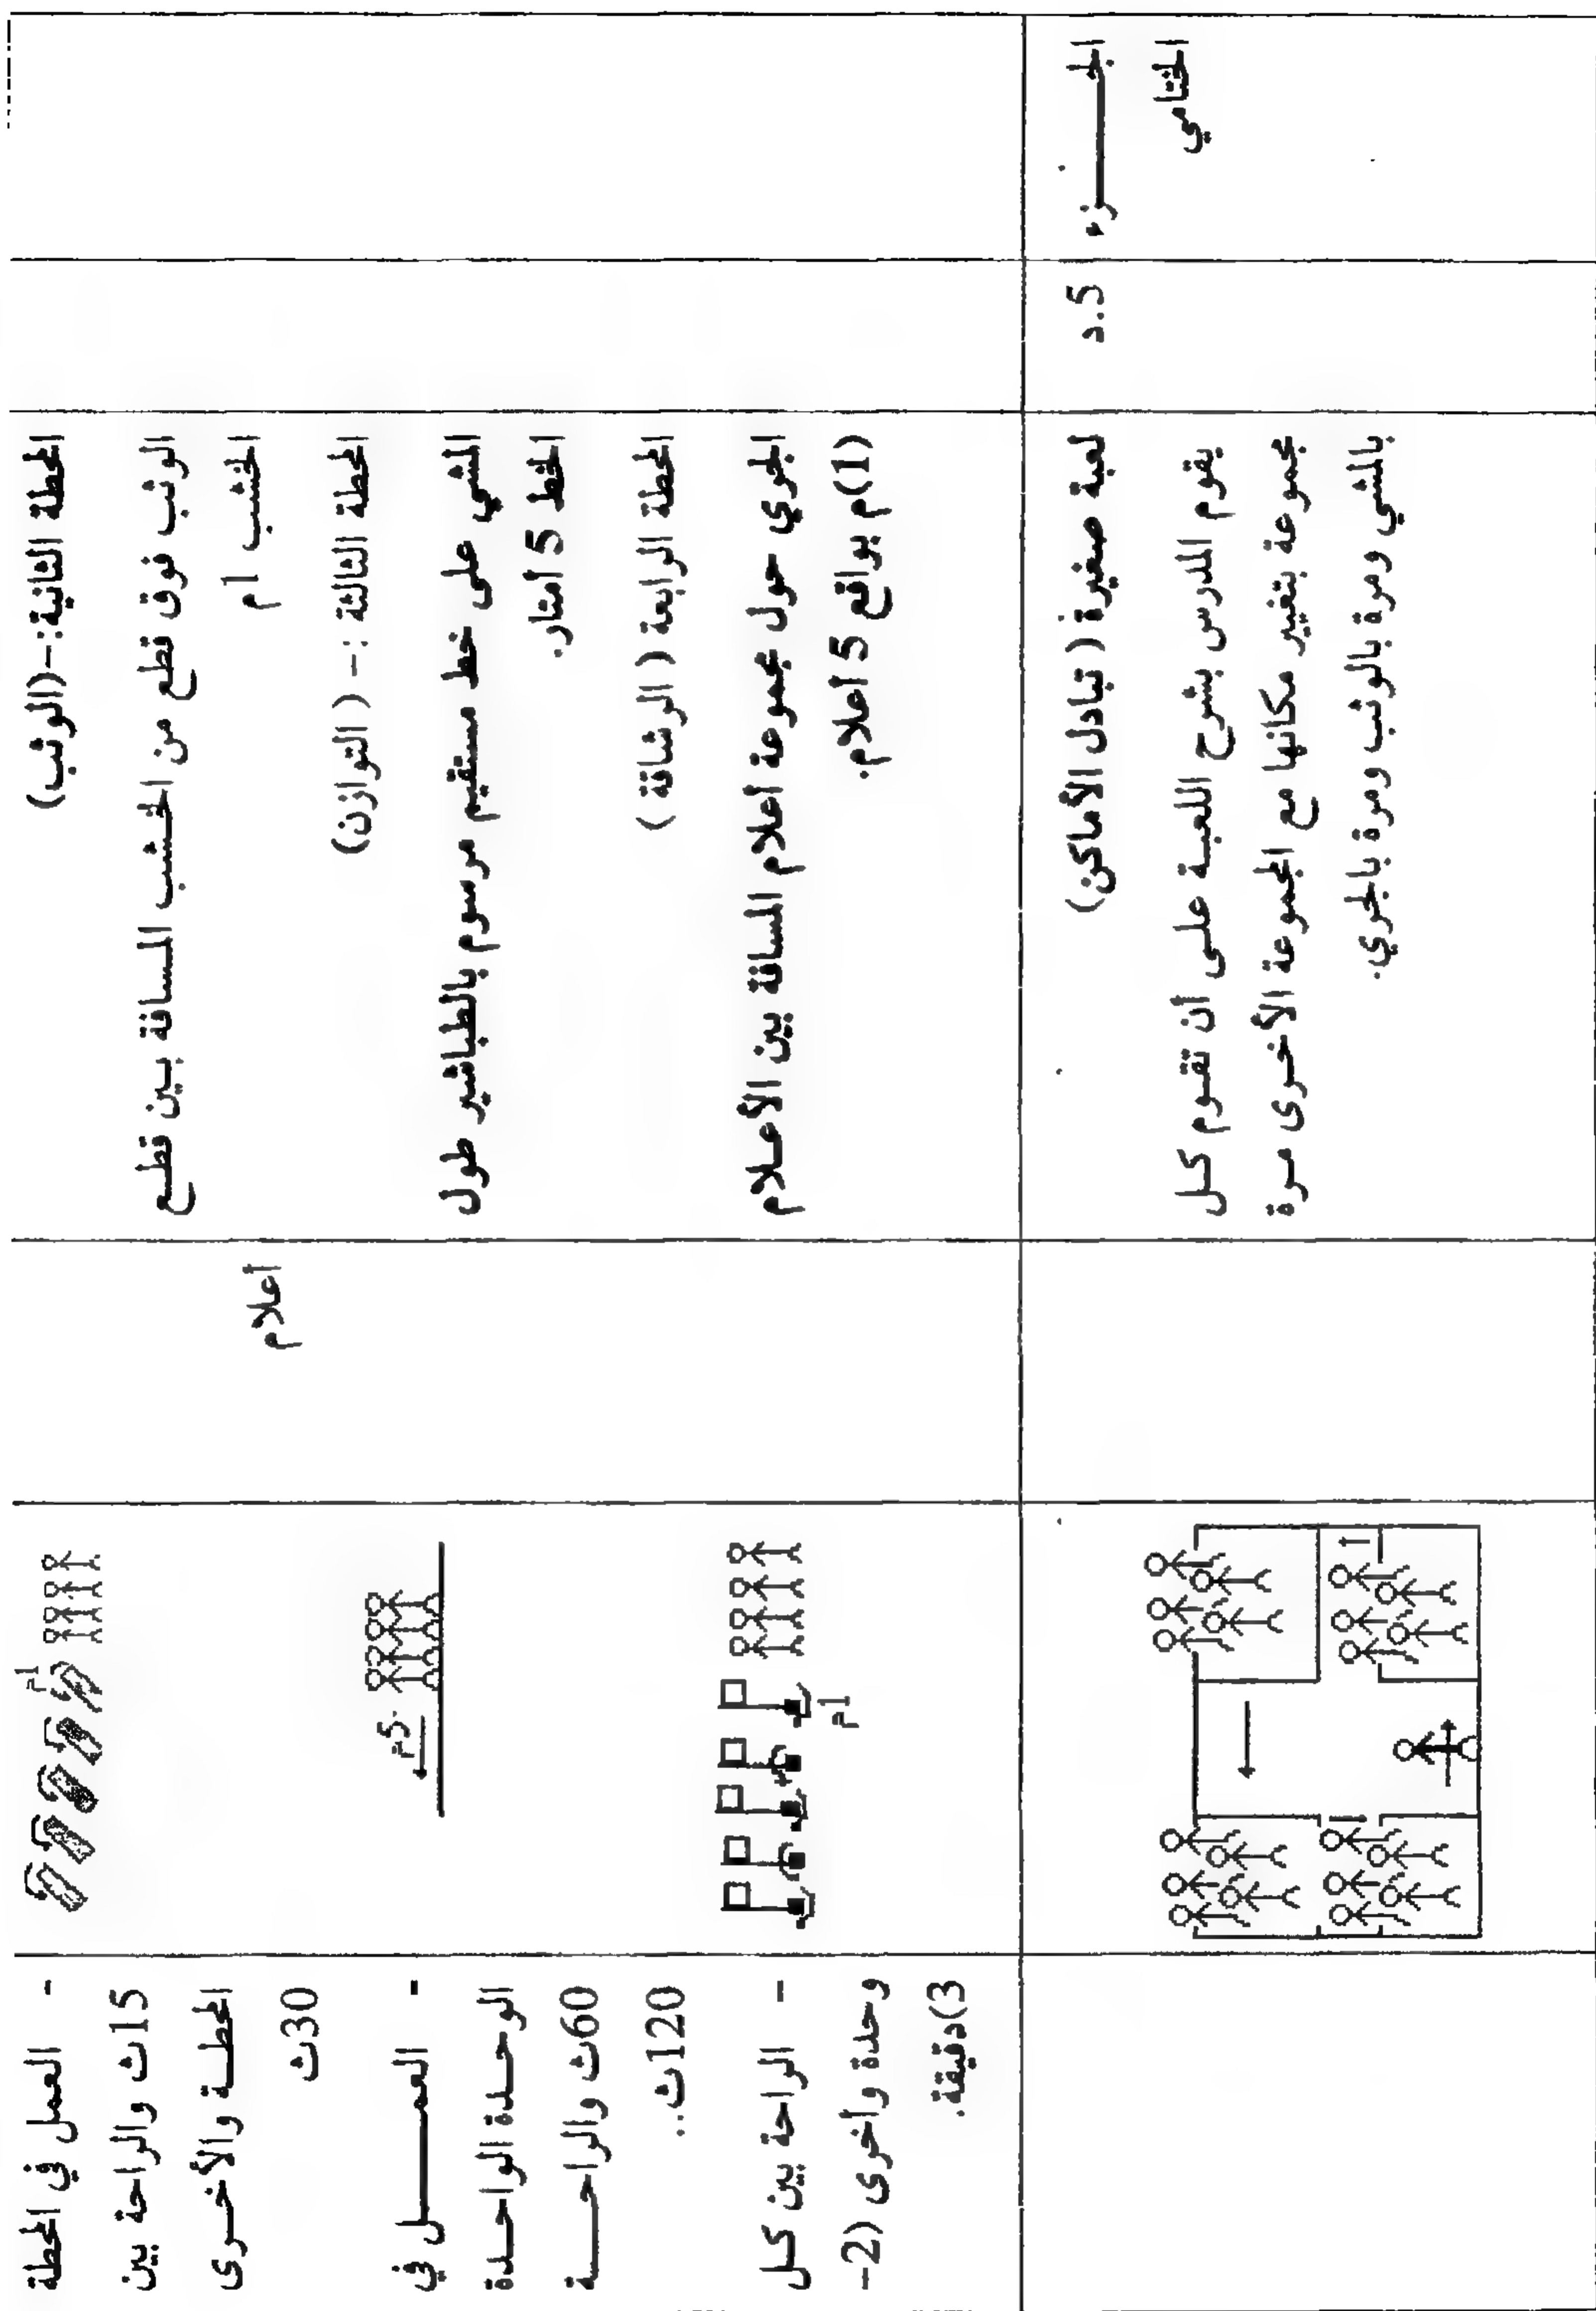 المحطة الثانية:-(الوثب)
الوثب فوق قطع من الخشب المسافة بين قطع
الخشب 1م
المحطة الثالثة :- ( التوازن)
المشي على خط مستقيم مرسوم بالطباشير طول
الخط 5 أمتار.
المحطة الرابعة ( الرشاقة )
الجري حول مجموعة أعلام المسافة بين الأعلام
(1)م بواقع 5 أعلام.
أعلام
1م
5م
1م
- العمل في المحطة
15ث والراحة بين
المحطة والأخرى
30ث
- العمل في
الوحدة الواحدة
60ث والراحة
120ث..
- الراحة بين كل
وحدة وأخرى (2-
3)دقيقة.
الجزء
الختامي
5.د
لعبة صغيرة ( تبادل الأماكن)
يقوم المدرس بشرح اللعبة على أن تقوم كل
مجموعة بتغيير مكانها مع المجموعة الأخرى مرة
بالمشي ومرة بالوثب ومرة بالجري.